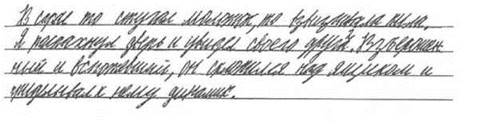 В сарае то стучал молоток, то взвизгивала пила.
Я распахнул дверь и увидел своего друга. Взъерошен-
ный и вспотевший, он склонился над ящиком и
прилаживал к нему динамик.